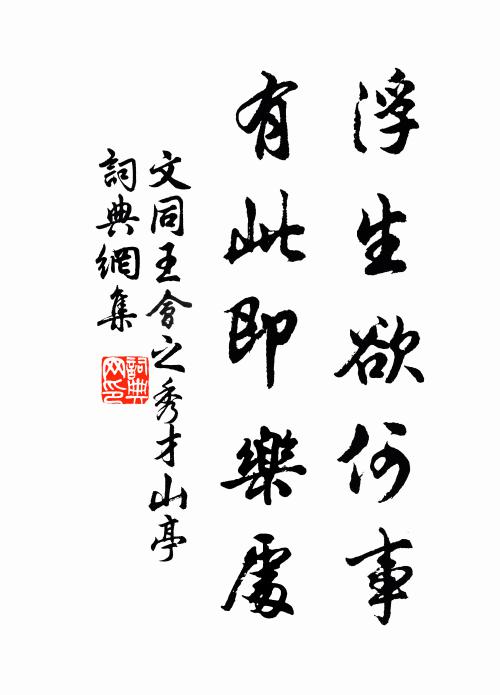 浮生欲何事
有此即樂處
文同王會之秀才山亭
詞典網集
詞典
网印